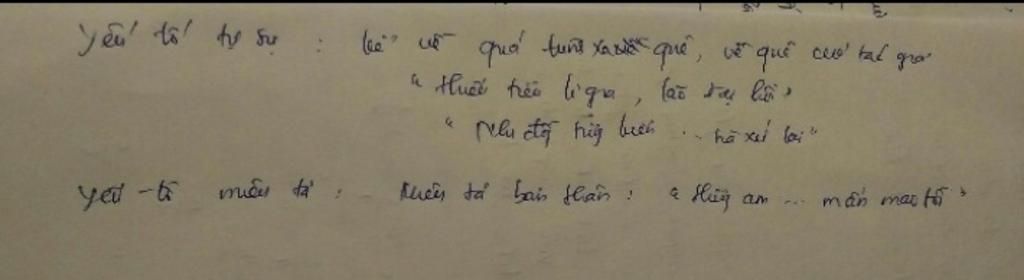 Yếu tố tự sự : kể về quá trình xa quê, về quê của tác giả
"thiếu tiểu li gia, lão đại hồi"
"Nhi đồng tương kiến ... hà xứ lai"
Yếu tố miêu tả : miêu tả bản thân : " ... mấn mao tồi"